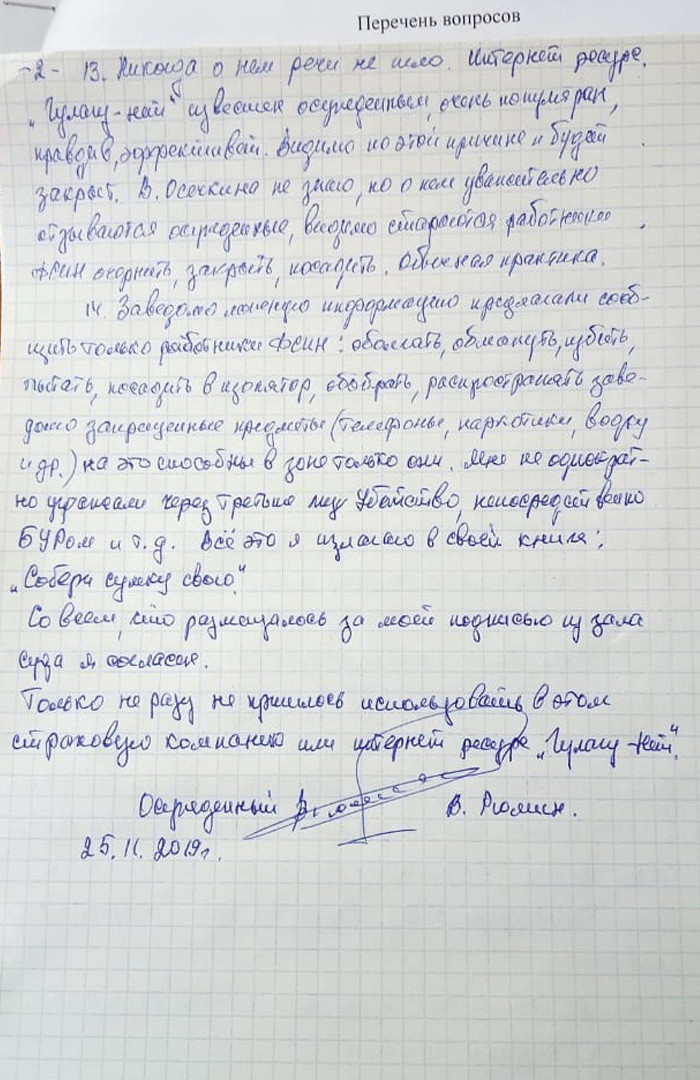 Перечень вопросов
-2- 13. Никогда о нем речи не шло. Интернет ресурс.
„Гулагу-нет" известен осужденным, очень популярен,
правдив, эффективен. Видимо по этой причине и будет
закрыт. В. Осечкина не знаю, но о нем уважительно
отзываются осужденные, видимо стараются работники
ФСИН очернить, закрыть, посадить. Обычная практика.
14. Заведомо ложную информацию предлагали сооб-
щить только работники ФСИН: оболгать, обмануть, избить,
пытать, посадить в изолятор, обобрать, распространять заве-
домо запрещенные предметы (телефоны, наркотики, водку
и др.) на это способны в зоне только они. Мне не однократ-
но угрожали через третьих лиц убийство, непосредственно
БУРом и т.д. Всё это я излагаю в своей книге:
„Собери сумку свою."
Со всем, что размещалось за моей подписью из зала
суда я согласен.
Только не разу не пришлось использовать в этом
страховую компанию или интернет ресурс „Гулагу-Нет".
Осужденный В. Рюмин.
25.11.2019г.